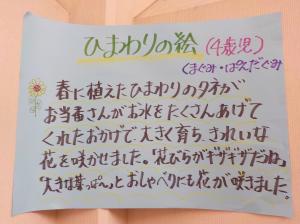 ひまわりの絵 (4歳児)
くまぐみ・ぱんだぐみ
春に植えたひまわりのタネが
お当番さんがお水をたくさんあげて
くれたおかげで、大きく育ち、きれいな
花を咲かせました。「花びらがギザギザだね」
「大きな葉っぱ〜」とおしゃべりにも花が咲きました。